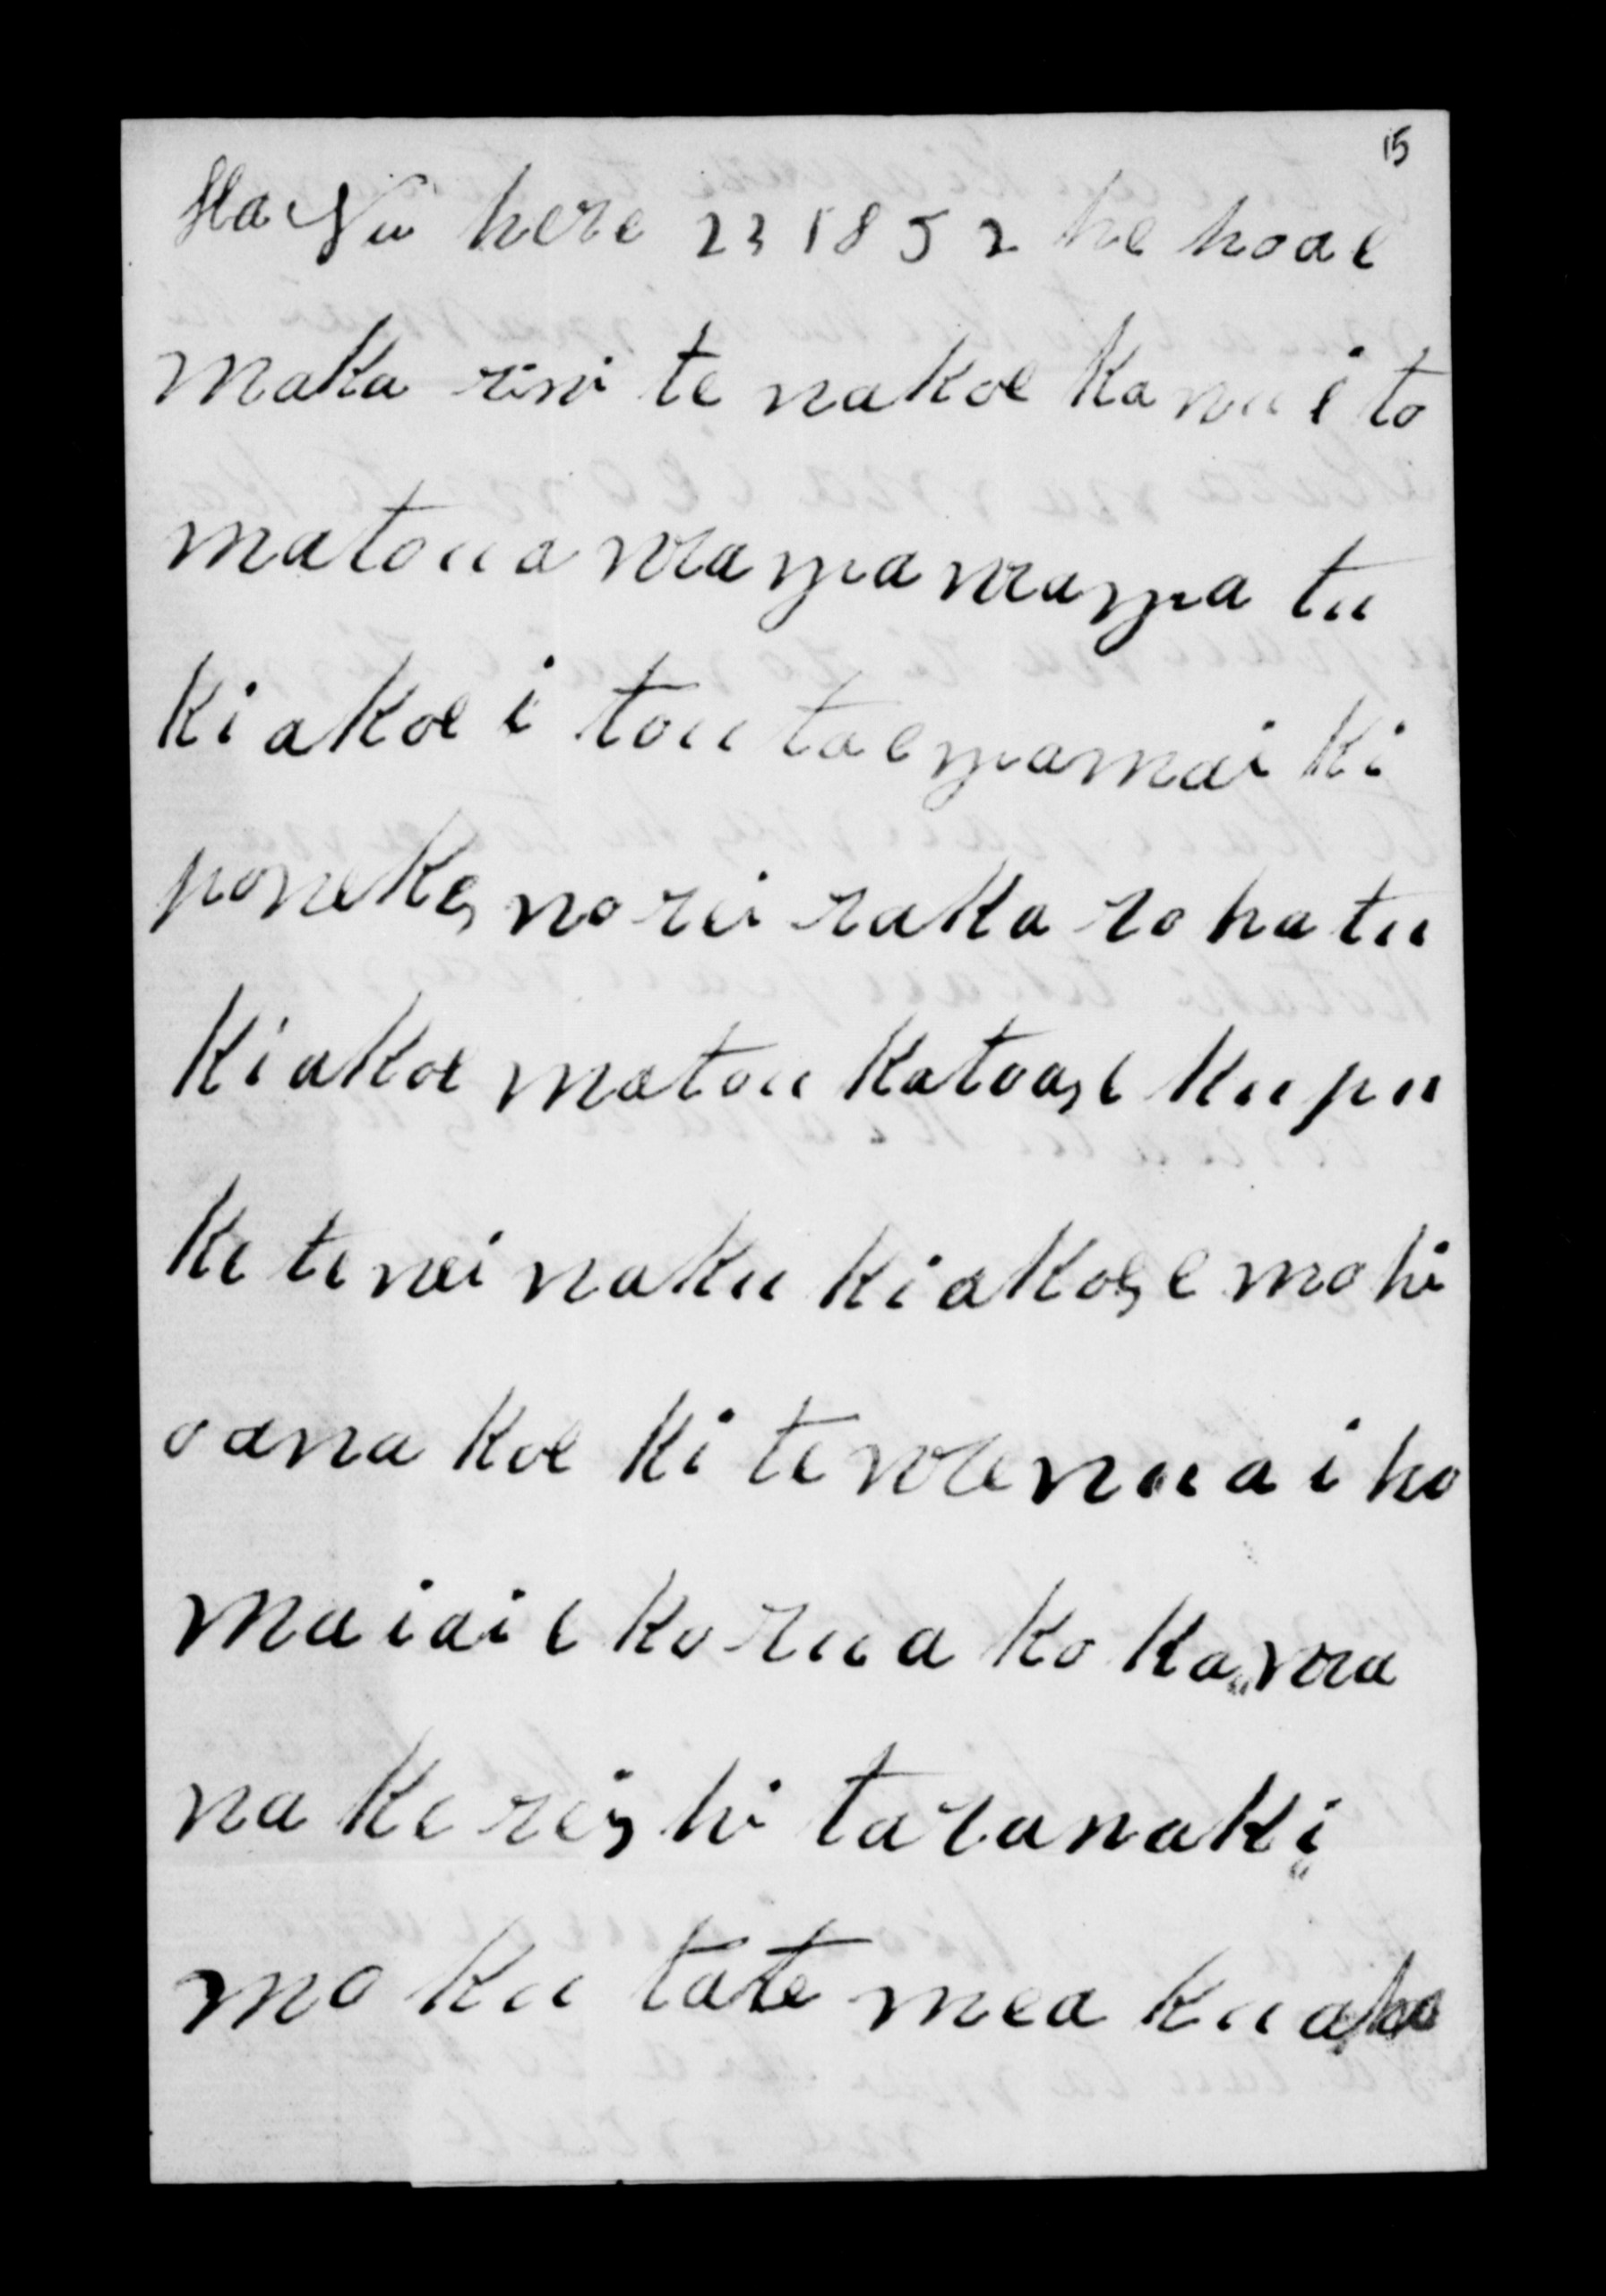 15
Ha Nu here 23 1852 he hoa e
maka rini te na koe Ka nui to
matou a wa ŋa wa ŋa tu
Ki a Koe i tou ta e ŋa mai Ki
poneke, no rei raka ro ha tu
Ki a Koe matou Katoa, e Ku pu
Ke te nei naku Ki a Koe, e mo hi
o ana Koe Ki te wenua i ho
ma i ai e Ko rua Ko Ka, wa
na Ke rei, hi taranaki
mo Ku ta te mea Ku